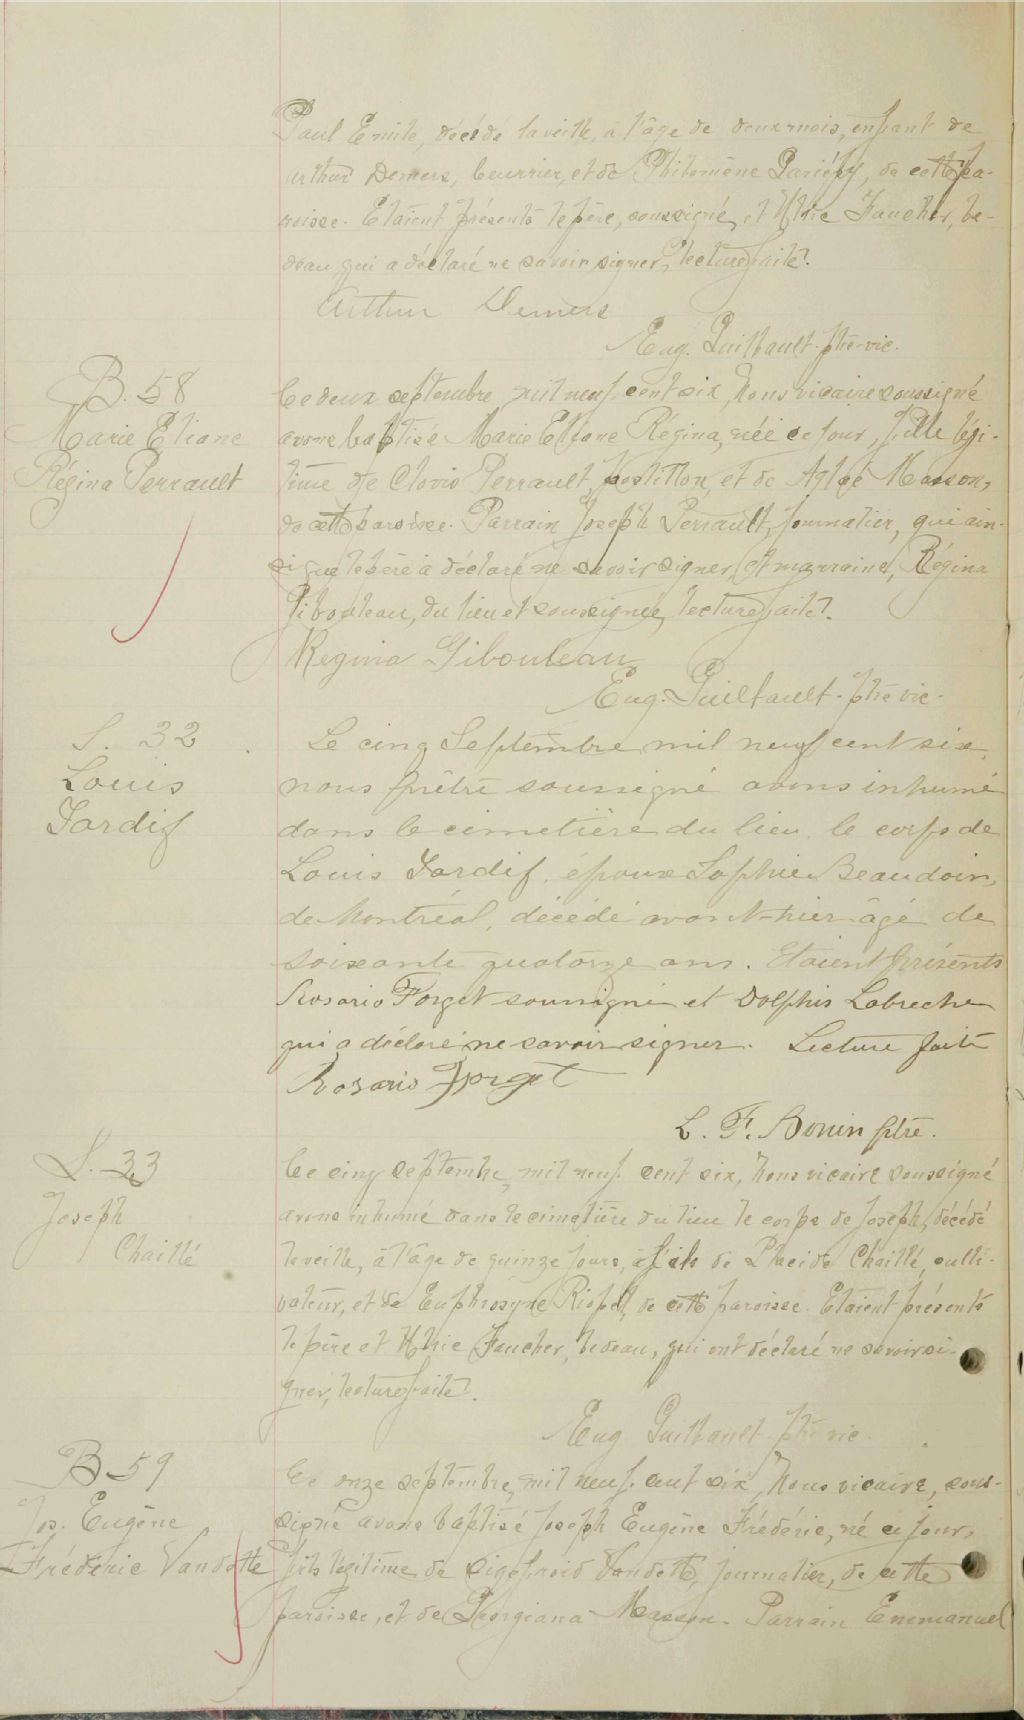 Paul Emile, décédé la veille, à l'âge de deux mois, enfant de
Arthur Demers, beurrier, et de Philomène Gariépy, de cette pa-
roisse. Etaient présents le père, soussigné, et Faucher, be-
deau, qui a déclaré ne savoir signer, lecture faite.
Arthur Demers
Eug. Guilbault ptre-vic.
B. 58
Marie Eliane
Régina Perrault
Ce deux septembre, mil neuf cent six, Nous vicaire soussigné
avons baptisé Marie Eliane Régina, née ce jour, fille légi-
time de Clovis Perrault, postillon, et de Aglaé Masson,
de cette paroisse. Parrain Joseph Perrault, journalier, qui ain-
si que le père a déclaré ne savoir signer, et marraine, Régina
Gibouleau, du lieu et soussignée, lecture faite.
Regina Gibouleau
Eug. Guilbault. ptre vic.
S. 32
Louis
Tardif
Le cinq Septembre mil neuf cent six,
nous prêtre soussigné avons inhumé
dans le cimetière du lieu, le corps de
Louis Tardif, époux Sophie Beaudoin,
de Montréal, décédé avant-hier âgé de
soixante quatorze ans. Etaient présents
Rosario Forget soussigné et Dolphis Labreche
qui a déclaré ne savoir signer. Lecture faite
Rosario Forget
L. F. Bonin ptre.
S. 33
Joseph
Chaillé
Ce cinq septembre, mil neuf cent six, Nous vicaire soussigné
avons inhumé dans le cimetière du lieu le corps de Joseph, décédé
la veille, à l'âge de quinze jours, fils de Placide Chaillé, culti-
vateur, et de Euphrosyne Riopel, de cette paroisse. Etaient présents
le père et Faucher, bedeau, qui ont déclaré ne savoir si-
gner, lecture faite.
Eug. Guilbault. ptre vic.
B 59
Jos. Eugène
Fréderic Vandette
Ce onze septembre, mil neuf cent six, Nous vicaire, sous-
signé avons baptisé Joseph Eugène Fréderic, né ce jour,
fils légitime de Sigefroid Vandette, journalier, de cette
paroisse, et de Georgiana Masson. Parrain Emmanuel